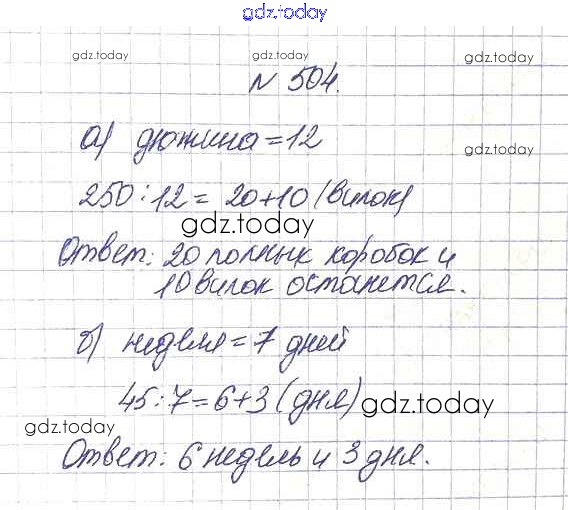 gdz.today
gdz.today gdz.today gdz.today
№ 504.
а) дюжина = 12
gdz.today
250 : 12 = 20 + 10 (вилок)
gdz.today
Ответ: 20 полных коробок и
10 вилок останется.
б) неделя = 7 дней
45 : 7 = 6 + 3 (дня) gdz.today
gdz.today
Ответ: 6 недель и 3 дня.